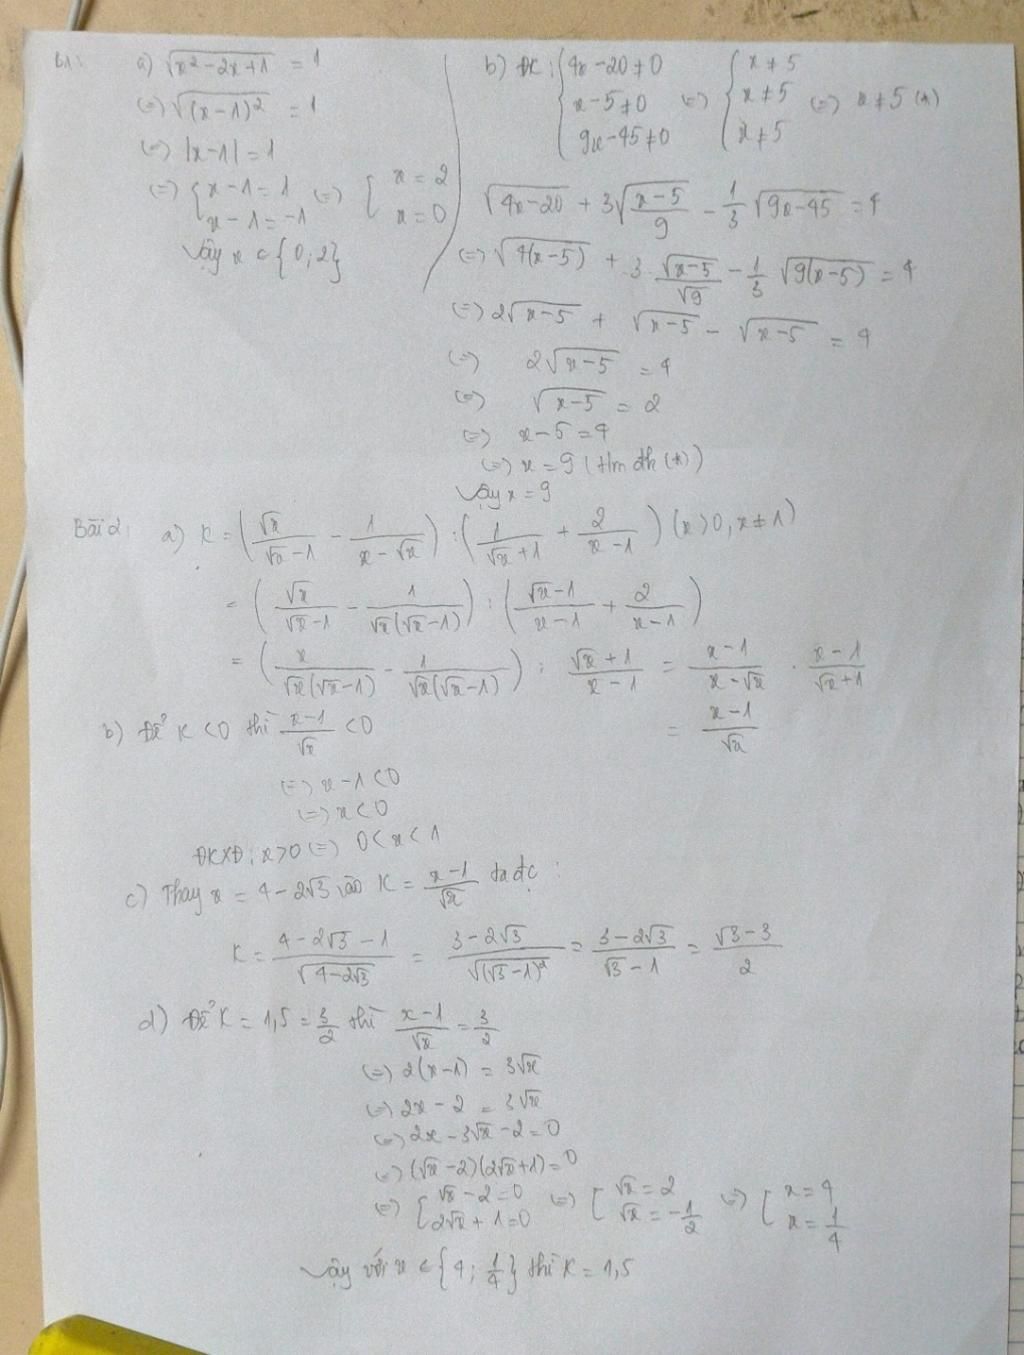 B1: a) √(x² - 2x + 1) = 1
(=) √((x - 1)²) = 1
(=) |x - 1| = 1
(=) { x - 1 = 1 ; x - 1 = -1 (=) { x = 2 ; x = 0
Vậy x ∈ {0; 2}
b) ĐK: { 4x - 20 ≠ 0 ; x - 5 ≠ 0 ; 9x - 45 ≠ 0 (=) { x ≠ 5 ; x ≠ 5 ; x ≠ 5 (=) x ≠ 5 (*)
√(4x - 20) + 3√((x - 5)/9) - 1/3 √(9x - 45) = 4
(=) √(4(x - 5)) + 3 · √(x - 5)/√9 - 1/3 √(9(x - 5)) = 4
(=) 2√(x - 5) + √(x - 5) - √(x - 5) = 4
(=) 2√(x - 5) = 4
(=) √(x - 5) = 2
(=) x - 5 = 4
(=) x = 9 (tm đk (*))
Vậy x = 9
Bài 2: a) K = (√x/(√x - 1) - 1/(x - √x)) : (1/(√x + 1) + 2/(x - 1)) (x > 0, x ≠ 1)
= (√x/(√x - 1) - 1/(√x(√x - 1))) : ((√x - 1)/(x - 1) + 2/(x - 1))
= (x/(√x(√x - 1)) - 1/(√x(√x - 1))) : (√x + 1)/(x - 1) = (x - 1)/(x - √x) · (x - 1)/(√x + 1)
= (x - 1)/√x
b) Để K < 0 thì (x - 1)/√x < 0
(=) x - 1 < 0
(=) x < 0
ĐKXĐ: x > 0 (=) 0 < x < 1
c) Thay x = 4 - 2√3 vào K = (x - 1)/√x ta đc:
K = (4 - 2√3 - 1)/√(4 - 2√3) = (3 - 2√3)/√((√3 - 1)²) = (3 - 2√3)/(√3 - 1) = (√3 - 3)/2
d) Để K = 1,5 = 3/2 thì (x - 1)/√x = 3/2
(=) 2(x - 1) = 3√x
(=) 2x - 2 = 3√x
(=) 2x - 3√x - 2 = 0
(=) (√x - 2)(2√x + 1) = 0
(=) [ √x - 2 = 0 ; 2√x + 1 = 0 (=) [ √x = 2 ; √x = -1/2 (=) [ x = 4 ; x = 1/4
Vậy với x ∈ {4; 1/4} thì K = 1,5